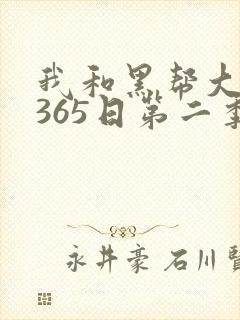 我和黑帮大
365日第二季
永井豪 石川賢